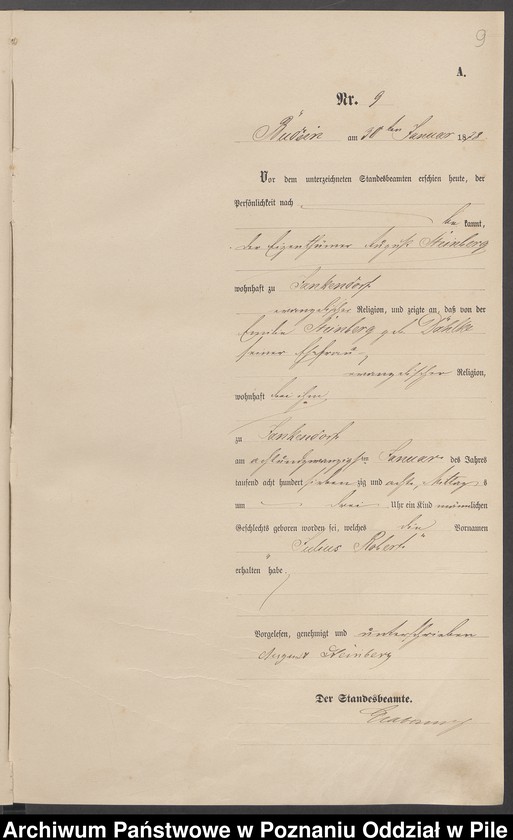 9
A.
Nr. 9
Budsin am 30ten Januar 1878
Vor dem unterzeichneten Standesbeamten erschien heute, der
Persönlichkeit nach
be kannt,
der Eigenthümer August Steinberg
wohnhaft zu Jankendorf
evangelischer Religion, und zeigte an, daß von der
Emilie Steinberg geb. Dahlke
seiner Ehefrau,
evangelischer Religion,
wohnhaft bei ihm,
zu Jankendorf
am achtundzwanzigsten Januar des Jahres
tausend acht hundert sieben zig und acht, Mittag s
um drei Uhr ein Kind männlichen
Geschlechts geboren worden sei, welches die Vornamen
"Julius Robert"
erhalten habe.
Vorgelesen, genehmigt und unterschrieben
August Steinberg
Der Standesbeamte.
Archiwum Państwowe w Poznaniu Oddział w Pile